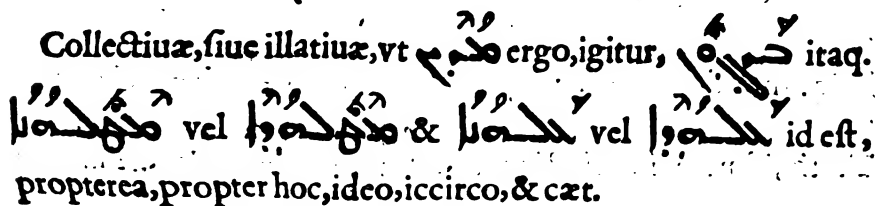 Collectiuæ, ſiue illatiuæ, vt ܡܕܝܢ ergo, igitur, itaq.
ܡܛܠܗܢܐ vel ܡܛܠܗܕܐ & ܥܠܗܢܐ vel ܥܠܗܕܐ id eſt,
propterea, propter hoc, ideo, iccirco, & cæt.